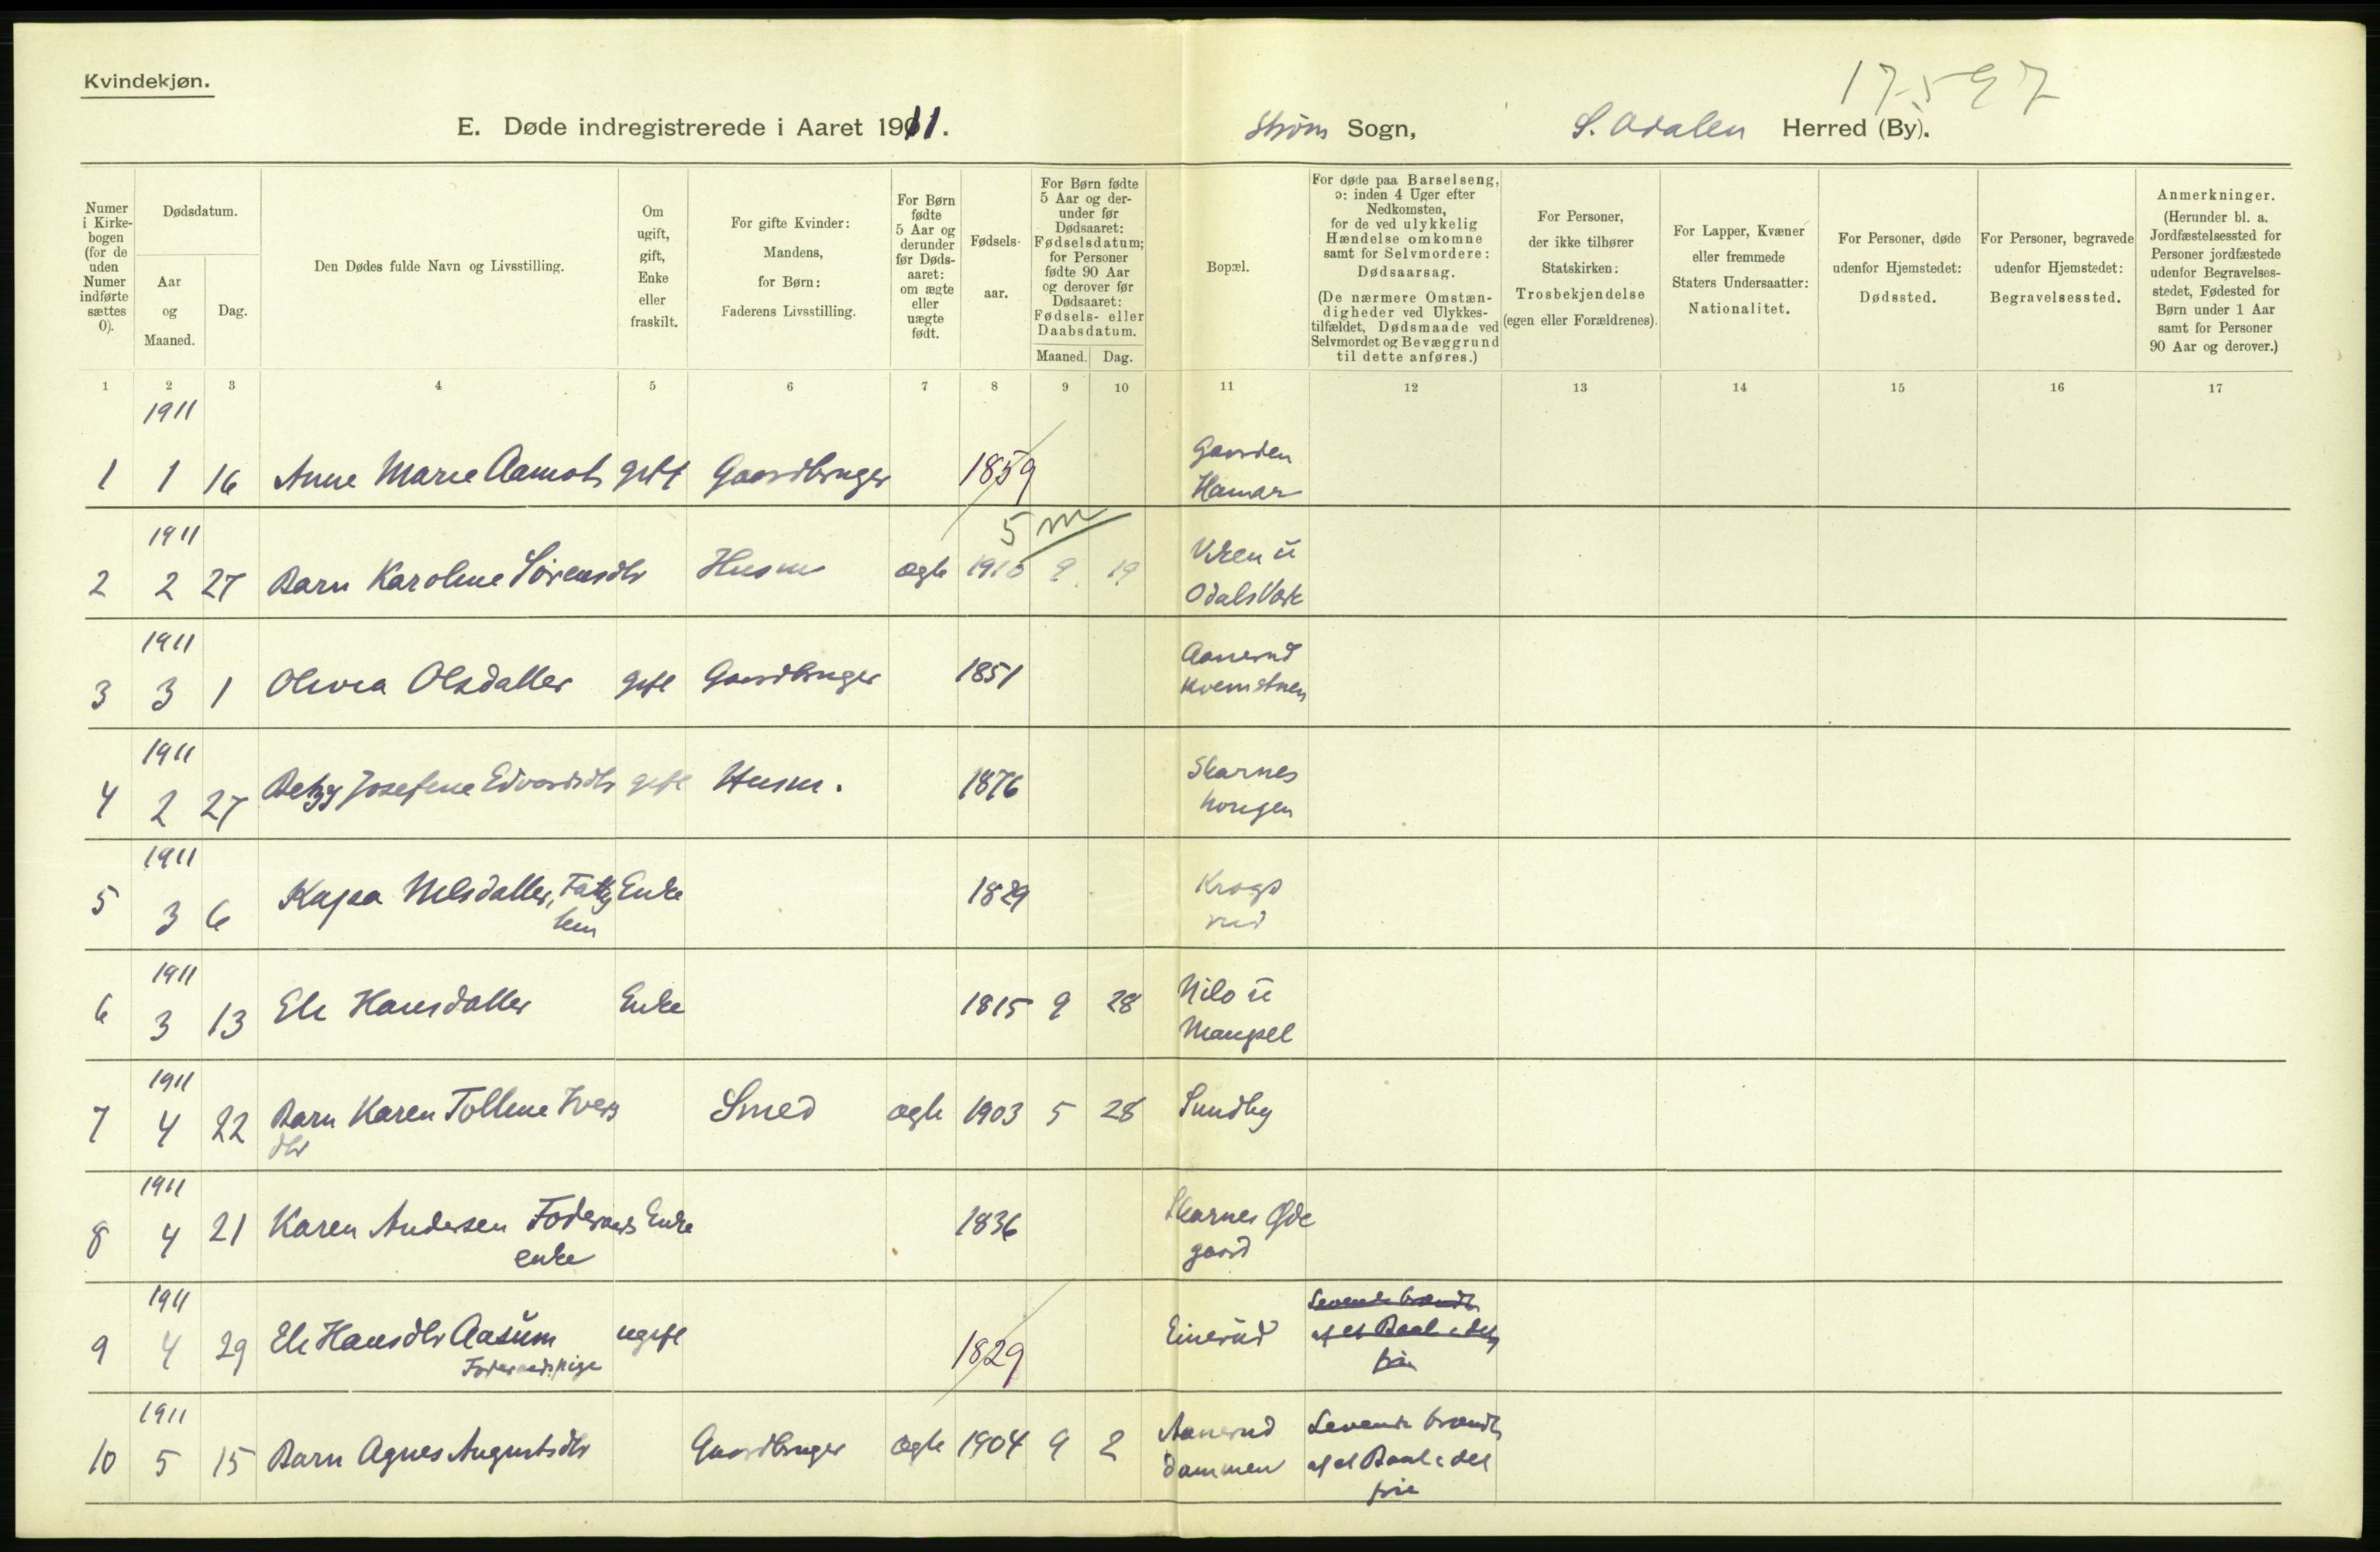 Kvindekjøn.
17597
E. Døde indregistrerede i Aaret 1911. Strøm Sogn, S. Odalen Herred (By).
Numer i Kirke-bogen (for de uden Numer indførte sættes 0).
Dødsdatum.
Aar og Maaned.
Dag.
Den Dødes fulde Navn og Livsstilling.
Om ugift, gift, Enke eller fraskilt.
For gifte Kvinder: Mandens, for Børn: Faderens Livsstilling.
For Børn fødte 5 Aar og derunder før Døds-aaret: om ægte eller uægte født.
Fødsels-aar.
For Børn fødte 5 Aar og der-under før Dødsaaret: Fødselsdatum; for Personer fødte 90 Aar og derover før Dødsaaret: Fødsels- eller Daabsdatum.
Maaned. Dag.
Bopæl.
For døde paa Barselseng, ɔ: inden 4 Uger efter Nedkomsten, for de ved ulykkelig Hændelse omkomne samt for Selvmordere: Dødsaarsag. (De nærmere Omstæn-digheder ved Ulykkes-tilfældet, Dødsmaade ved Selvmordet og Bevæggrund til dette anføres.)
For Personer, der ikke tilhører Statskirken: Trosbekjendelse (egen eller Forældrenes).
For Lapper, Kvæner eller fremmede Staters Undersaatter: Nationalitet.
For Personer, døde udenfor Hjemstedet: Dødssted.
For Personer, begravede udenfor Hjemstedet: Begravelsessted.
Anmerkninger. (Herunder bl. a. Jordfæstelsessted for Personer jordfæstede udenfor Begravelses-stedet, Fødested for Børn under 1 Aar samt for Personer 90 Aar og derover.)
1 2 3 4 5 6 7 8 9 10 11 12 13 14 15 16 17
1911
1 1 16 Anne Marie Aamot gift Gaardbruger 1859 Gaarden
Hamar
5 m
1911
2 2 27 Barn Karoline Sørensdtr Husm ægte 1910 9 19 Viken u
Odals Værk
1911
3 3 1 Olivia Olsdatter gift Gaardbruger 1851 Aanerud
1911
4 2 27 Betzy Josefine Edvardsdtr gift Husm. 1876 Skarnes
haugen
1911
5 3 6 Kajsa Nilsdatter, Fattig Enke 1829 Krogs
lem rud
1911
6 3 13 Eli Hansdatter Enke 1815 9 28 Nilo u
Mangsel
1911
7 4 22 Barn Karen Tolline Ivers Smed ægte 1903 5 28 Sundby
dtr
1911
8 4 21 Karen Andersen Foderaads Enke 1836 Skarnes Øde
enke gaard
1911
9 4 29 Eli Hansdtr Aasum ugift 1829 Einerud Levende brændt
Foderaadspige af et Baal i det
frie
1911
10 5 15 Barn Agnes Augustsdtr Gaardbruger ægte 1904 9 2 Aanerud Levende brændt
dammen af et Baal i det
frie